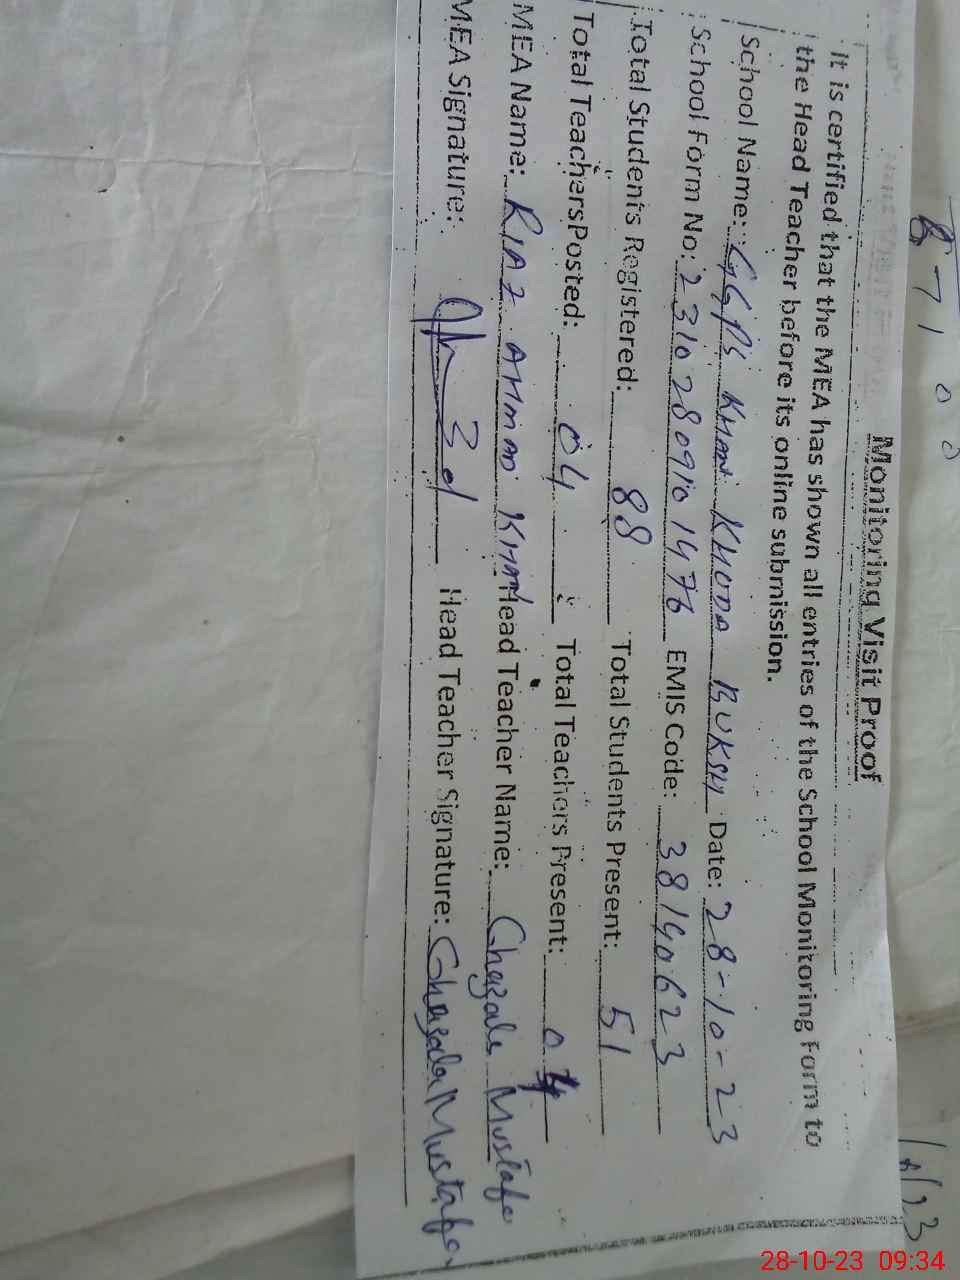 8710 0
Monitoring Visit Proof
It is certified that the MEA has shown all entries of the School Monitoring Form to
the Head Teacher before its online submission.
School Name: GGPS KHAN KHUDA BUKSH Date: 28-10-23
School Form No: 23102809101476 EMIS Code: 38140623
Total Students Registered: 88 Total Students Present: 51
Total Teachers Posted: 04 Total Teachers Present: 04
MEA Name: RIAZ AHMAD KHAN Head Teacher Name: Ghazala Mustafa
MEA Signature: Head Teacher Signature: Ghazala Mustafa
28-10-23 09:34